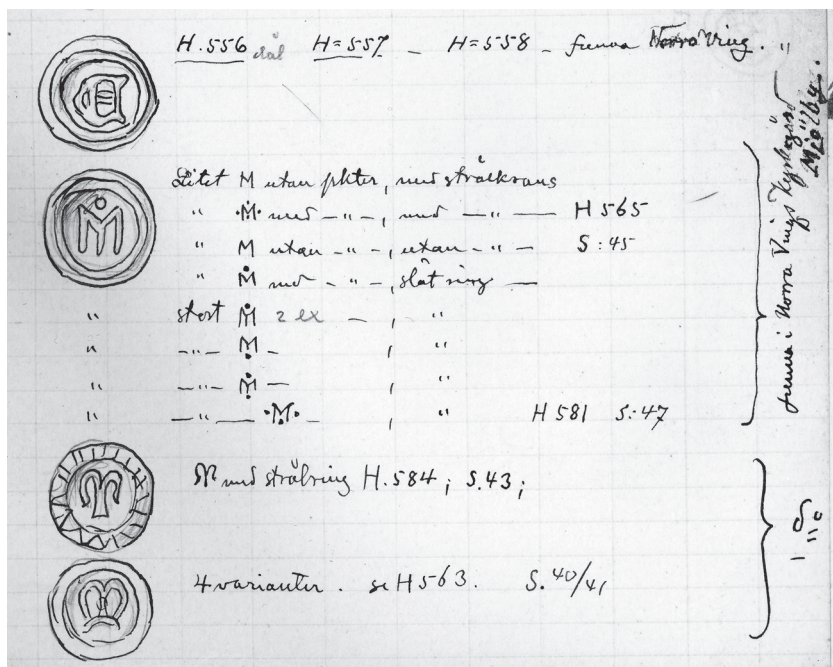 H.556 dål H=557 – H=558 – funna Norra Ving. "
Litet M utan pkter, med strålkrans
" ·Ṁ· med –"–, med –"– — H 565
" M utan –"–, utan –"– — S:45
" Ṁ med –"–, slät ring —
" stort Ṁ 2 ex – , "
" –"– Ṃ – , "
" –"– Ṁ – , "
" –"– ·M· – , " H 581 S:47
funna i Norra Vings Kyrkogård
Mjölby.
M med strålring H.584; S.43;
4 varianter. se H 563. S. 40/41